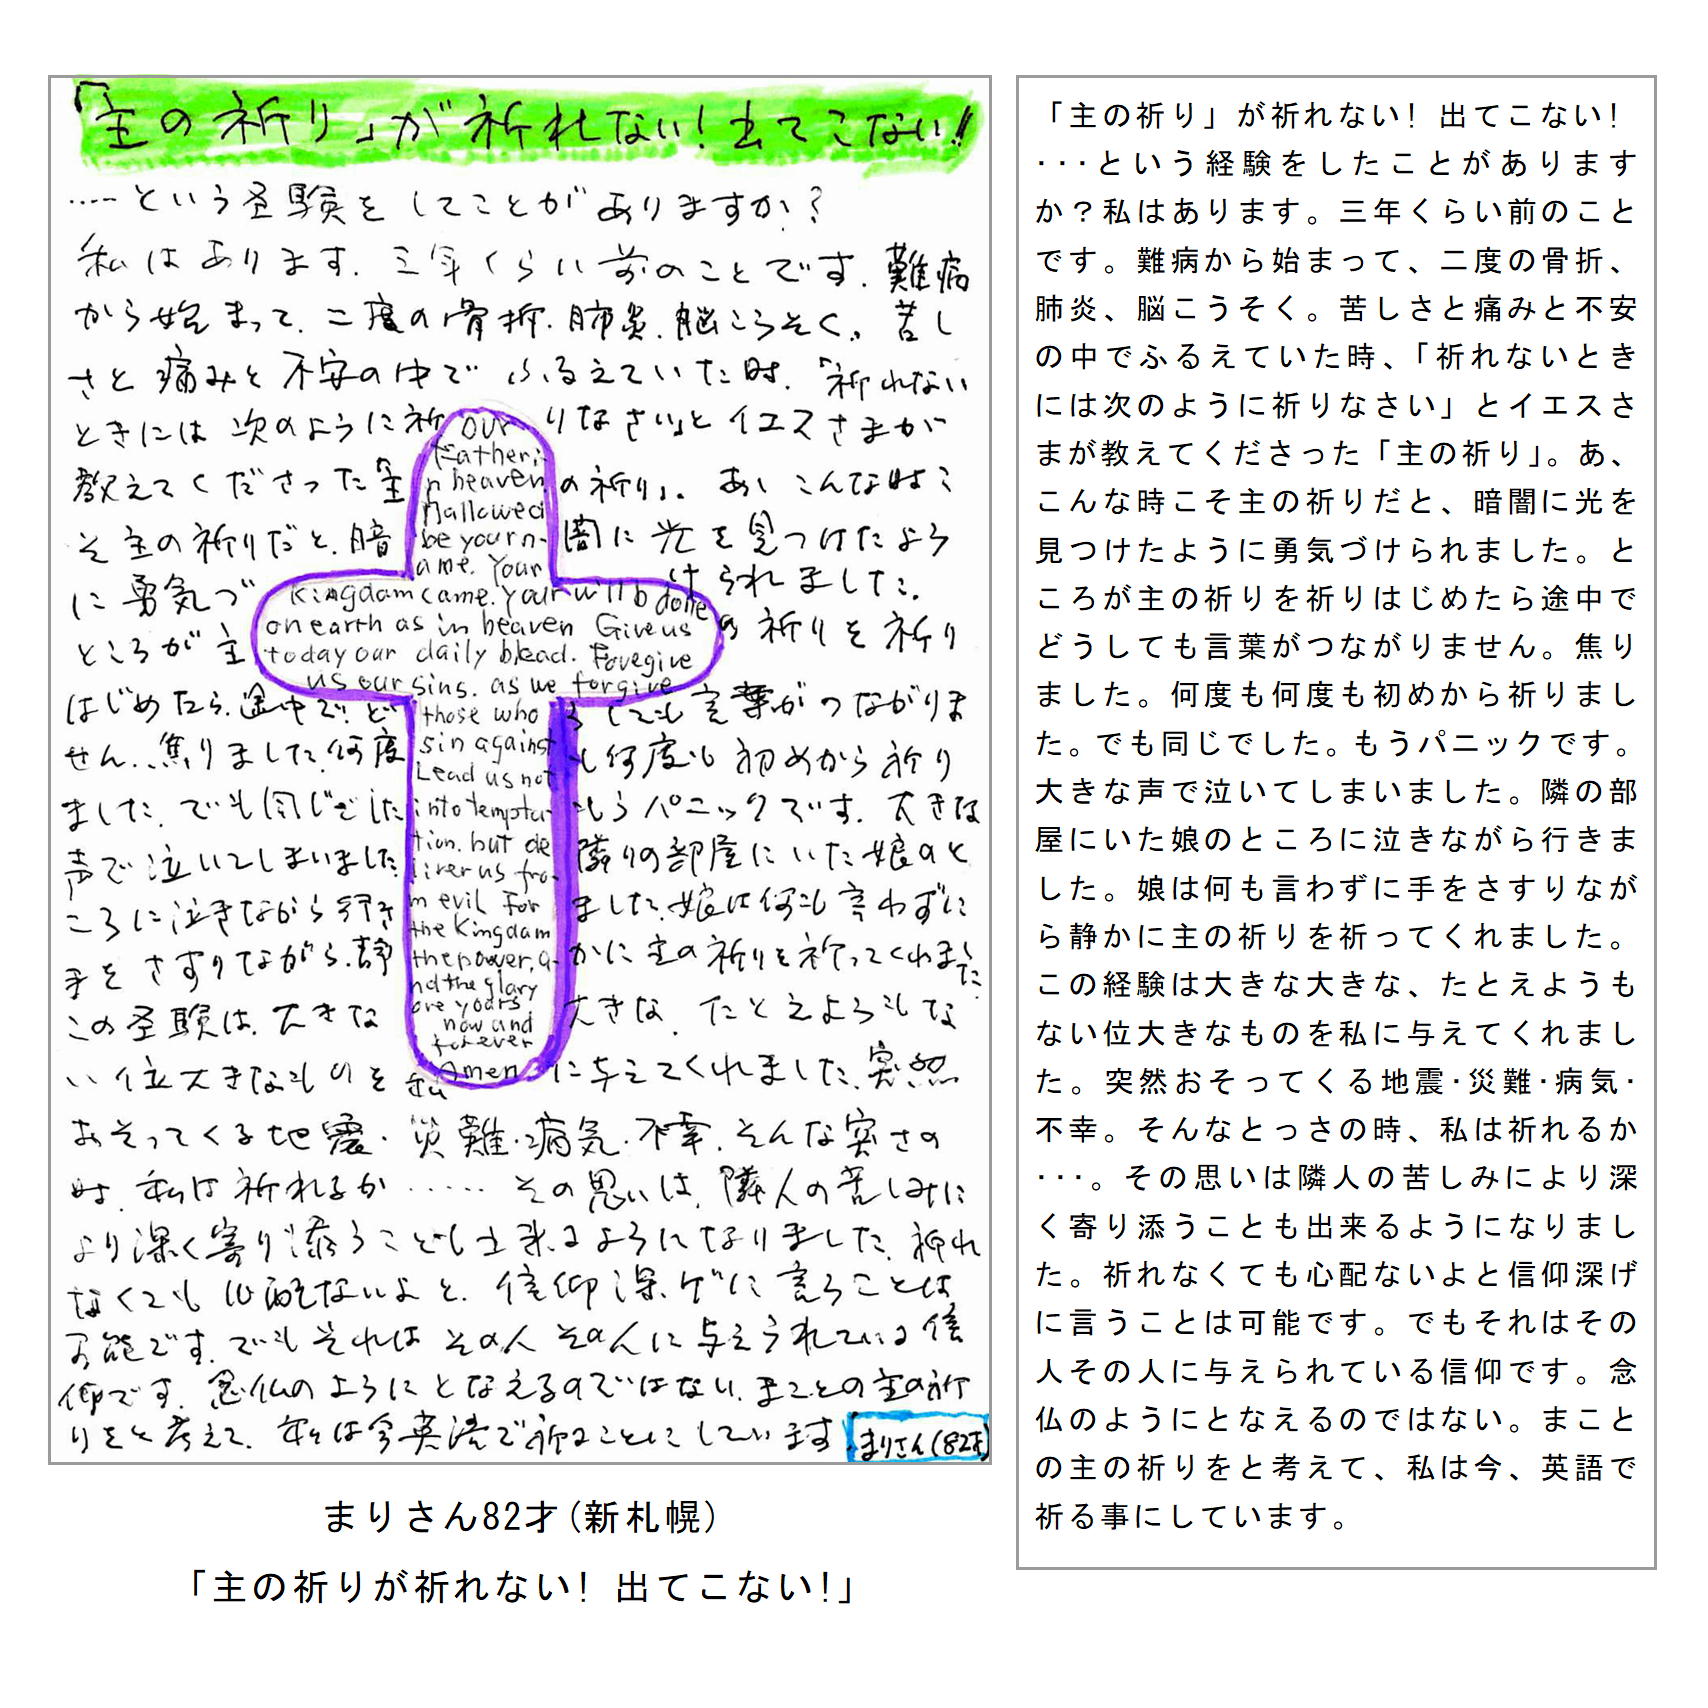 「主の祈り」が祈れない!出てこない!!
‥‥という経験をしてことがありますか?
私はあります.三年くらい前のことです.難病
から始まって.二度の骨折.肺炎.脳こうそく。苦し
さと痛みと不安の中でふるえていた時.「祈れない
ときには次のように祈りなさい」とイエスさまが
教えてくださった「主の祈り」.あ、こんな時こ
そ主の祈りだと.暗闇に光を見つけたよう
に勇気づけられました.
ところが主の祈りを祈り
はじめたら.途中でどうしても言葉がつながりま
せん.焦りました.何度も何度も初めから祈り
ました.でも同じでした もうパニックです.大きな
声で泣いてしまいました.隣りの部屋にいた娘のと
ころに泣きながら行きました.娘は何も言わずに
手をさすりながら.静かに主の祈りを祈ってくれました.
この経験は.大きな大きな.たとえようもな
い位大きなものを私に与えてくれました.突然
おそってくる地震.災難.病気.不幸.そんな突さの
時.私は祈れるか‥‥‥その思いは.隣人の苦しみに
より深く寄り添うことも出来るようになりました.祈れ
なくても心配ないよと.信仰深ゲに言うことは
可能です.でもそれはその人その人に与えられている信
仰です.念仏のようにとなえるのではない.まことの主の祈
りをと考えて.私は今英語で祈ることにしています.
まりさん(82才)
Our
Father i-
n heaven
Hallowed
be your n-
ame. Your
Kingdam came. Your will b done
on earth as in heaven Give us
today our daily bread. Foregive
us our sins. as we forgive
those who
sin against
Lead us not
into tempta-
tion. but de
liver us fro-
m evil For
the Kingdam
the power, a-
nd the glary
are yours
now and
forever
Amen
まりさん82才(新札幌)
「主の祈りが祈れない! 出てこない!」
「主の祈り」が祈れない! 出てこない!
･･･という経験をしたことがあります
か？私はあります。三年くらい前のこと
です。難病から始まって、二度の骨折、
肺炎、脳こうそく。苦しさと痛みと不安
の中でふるえていた時、「祈れないとき
には次のように祈りなさい」とイエスさ
まが教えてくださった「主の祈り」。あ、
こんな時こそ主の祈りだと、暗闇に光を
見つけたように勇気づけられました。と
ころが主の祈りを祈りはじめたら途中で
どうしても言葉がつながりません。焦り
ました。何度も何度も初めから祈りまし
た。でも同じでした。もうパニックです。
大きな声で泣いてしまいました。隣の部
屋にいた娘のところに泣きながら行きま
した。娘は何も言わずに手をさすりなが
ら静かに主の祈りを祈ってくれました。
この経験は大きな大きな、たとえようも
ない位大きなものを私に与えてくれまし
た。突然おそってくる地震･災難･病気･
不幸。そんなとっさの時、私は祈れるか
･･･。その思いは隣人の苦しみにより深
く寄り添うことも出来るようになりまし
た。祈れなくても心配ないよと信仰深げ
に言うことは可能です。でもそれはその
人その人に与えられている信仰です。念
仏のようにとなえるのではない。まこと
の主の祈りをと考えて、私は今、英語で
祈る事にしています。